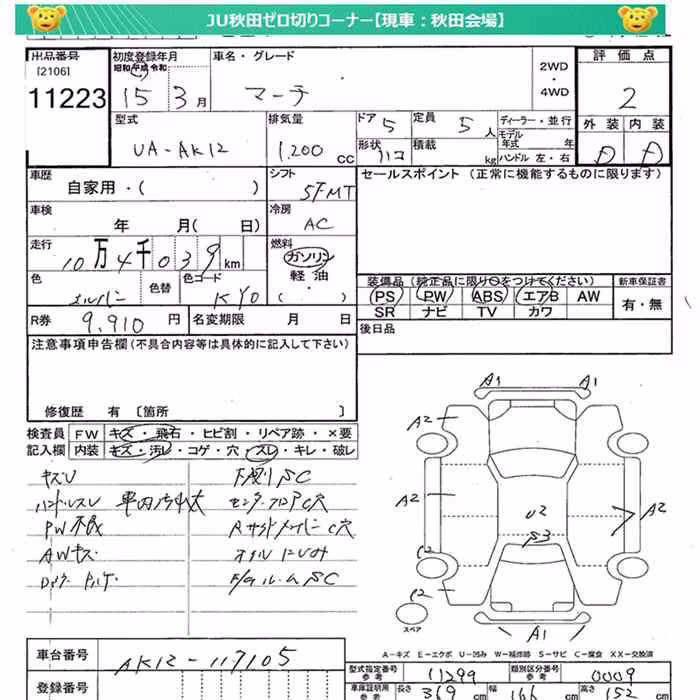 JU秋田ゼロ切りコーナー【現車：秋田会場】
出品番号 初度登録年月 車名・グレード 2WD 評価点
[2106] 昭和 平成 令和
11223 15 3月 マーチ ・ 4WD 2
型式 排気量 ドア 5 定員 5人 ディーラー・並行 外装 内装
UA-AK12 1,200 cc 形状 ハコ 積載 kg モデル年式 年 D D
ハンドル 左・右
車歴 シフト セールスポイント (正常に機能するものに限ります)
自家用・( ) 5FMT
車検 冷房
年 月( 日) AC
走行 燃料
10万4千039km ガソリン
軽油
色 色替 色コード ・( ) 装備品 (純正品に限り○をつけてください) 新車保証書
シルバー KY0 PS PW ABS エアB AW 有・無
SR ナビ TV カワ
R券 9,910円 名変期限 月 日 後日品
注意事項申告欄 (不具合内容等は具体的に記入して下さい)
修復歴 有 [箇所 ]
検査員 FW キズ・飛石・ヒビ割・リペア跡・×要
記入欄 内装 キズ・汚レ・コゲ・穴・スレ・キレ・破レ
キズU 下廻りSC
ハンドルスレ 車内汚れ大 センターフロアC穴
PW不良 RサイドメンバーC穴
AWキズ オイルにじみ
A1 A1
A2
A2 U2 A2
S3
C2
C2
スペア A1
A-キズ E-エクボ U-凹み W-補修跡 S-サビ C-腐食 XX-交換済
車台番号 AK12-117105
型式指定番号 参考 11299 類別区分番号 参考 0009
登録番号 車庫証明用 参考 長さ 369 cm 幅 166 cm 高さ 152 cm